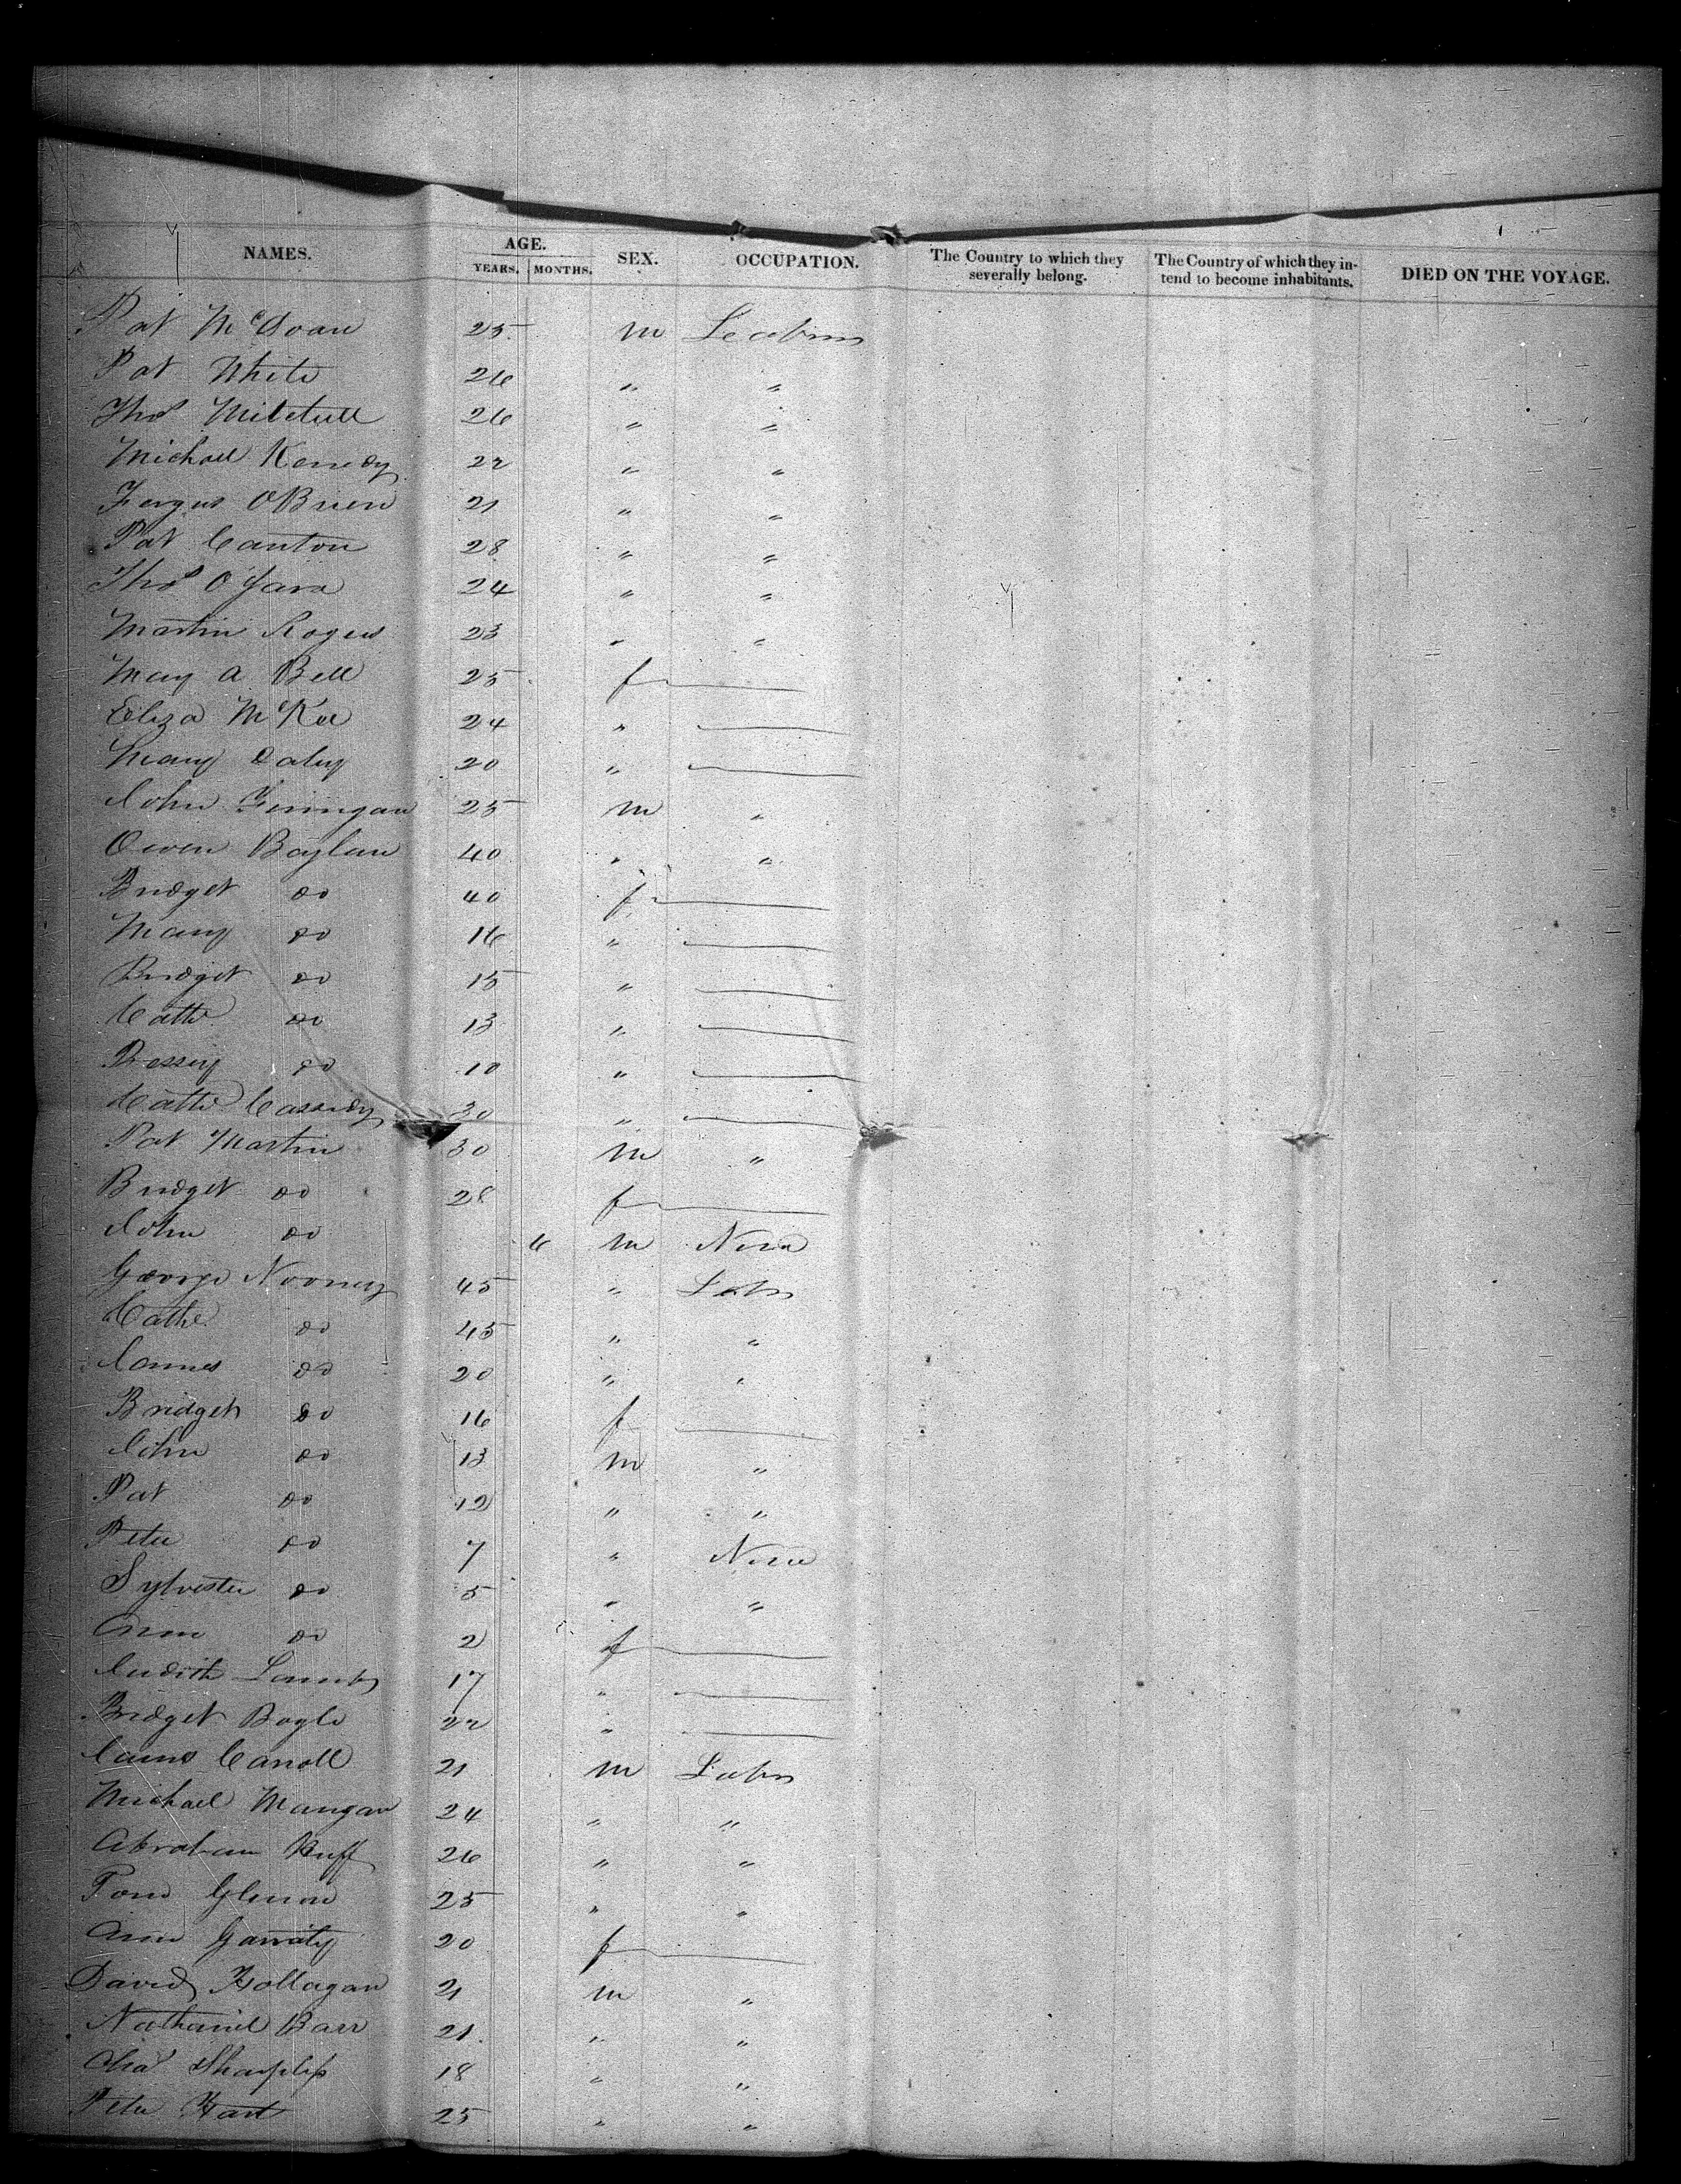 NAMES. AGE. YEARS. MONTHS. SEX. OCCUPATION. The Country to which they severally belong. The Country of which they intend to become inhabitants. DIED ON THE VOYAGE.
Pat 25 m
Pat White 26 " "
Thos Mitchell 26 " "
Michael Kennedy 22 " "
Fergus OBrien 21 " "
Pat Canton 28 " "
Thos O'Gara 24 " "
Martin Rogers 23 " "
Mary A Bell 25 f
Eliza McKee 24 "
Mary Daley 20 "
John Finnigan 25 m "
Owen Boylan 40 " "
Bridget do 40 f
Mary do 16 "
Bridget do 15 "
Cathe do 13 "
Bessey do 10 "
Cathe Cassidy 30 "
Pat Martin 30 m "
Bridget do 28 f
John do 6 m None
George Nooney 45 " Labr
Cathe do 45 " "
James do 20 " "
Bridget do 16 f
John do 13 m "
Pat do 12 " "
Peter do 7 " None
Sylvester do 5 " "
Ann do 2 f
Judith Lamb 17 "
Bridget Bogle 22 "
James Carroll 21 m Labr
Michael Mangan 24 " "
Abraham Huff 26 " "
Tom Glenon 25 " "
Ann Garraty 20 f
David Hollagan 21 m "
Nathaniel Barr 21 " "
Chas Sharples 18 " "
Peter Hart 25 " "